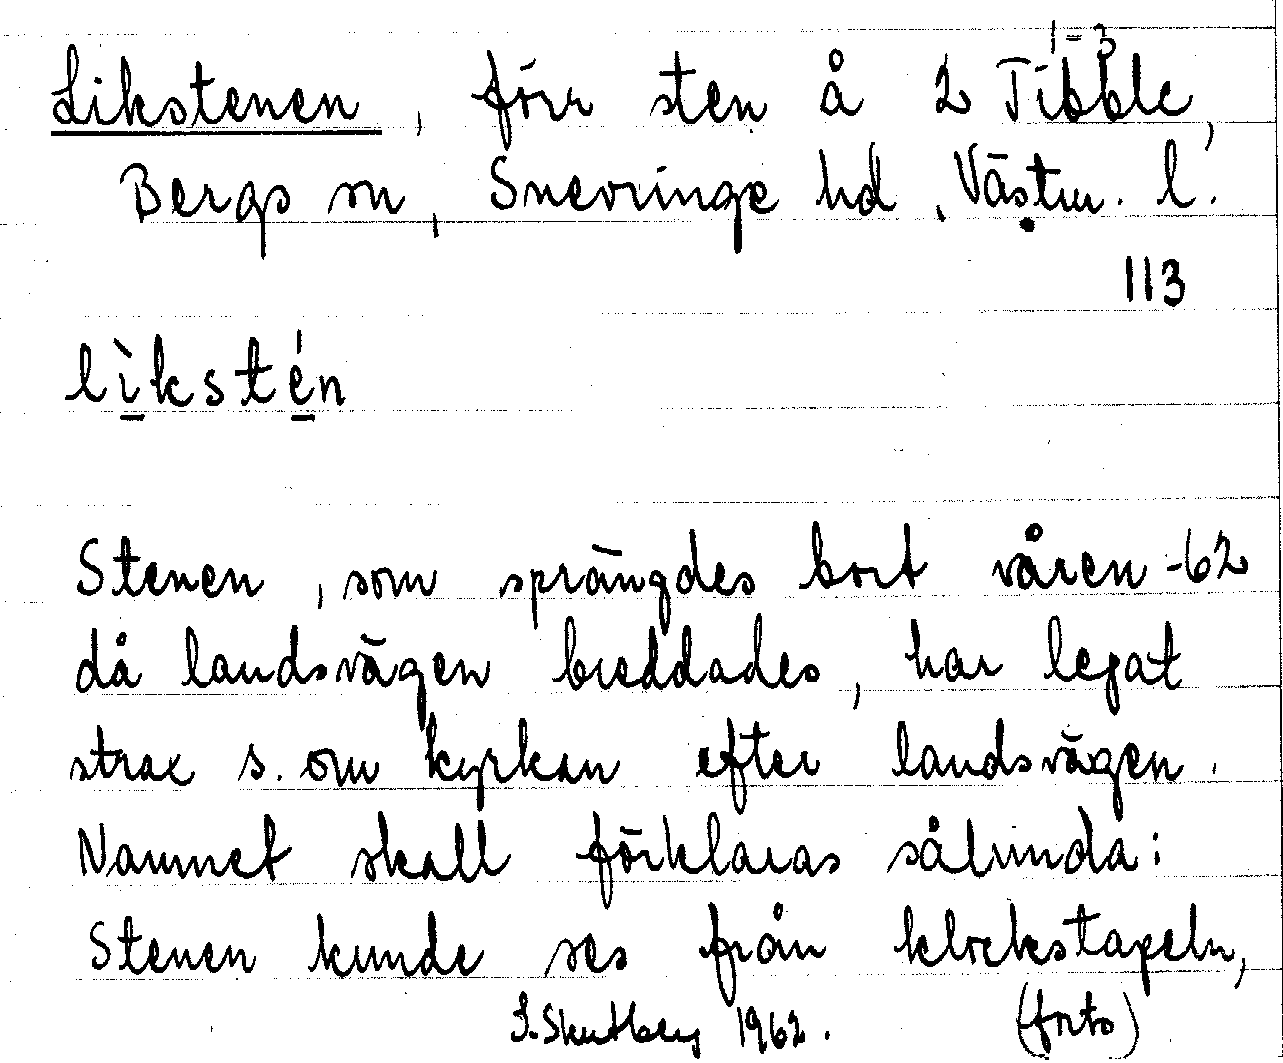 1-3
Likstenen, förr sten å 2 Tibble,
Bergs sn, Snevringe hd, Västm. l.
113
lìkstén
Stenen, som sprängdes bort våren -62
då landsvägen breddades, har legat
strax s. om kyrkan efter landsvägen.
Namnet skall förklaras sålunda:
Stenen kunde ses från klockstapeln,
1962. (forts)